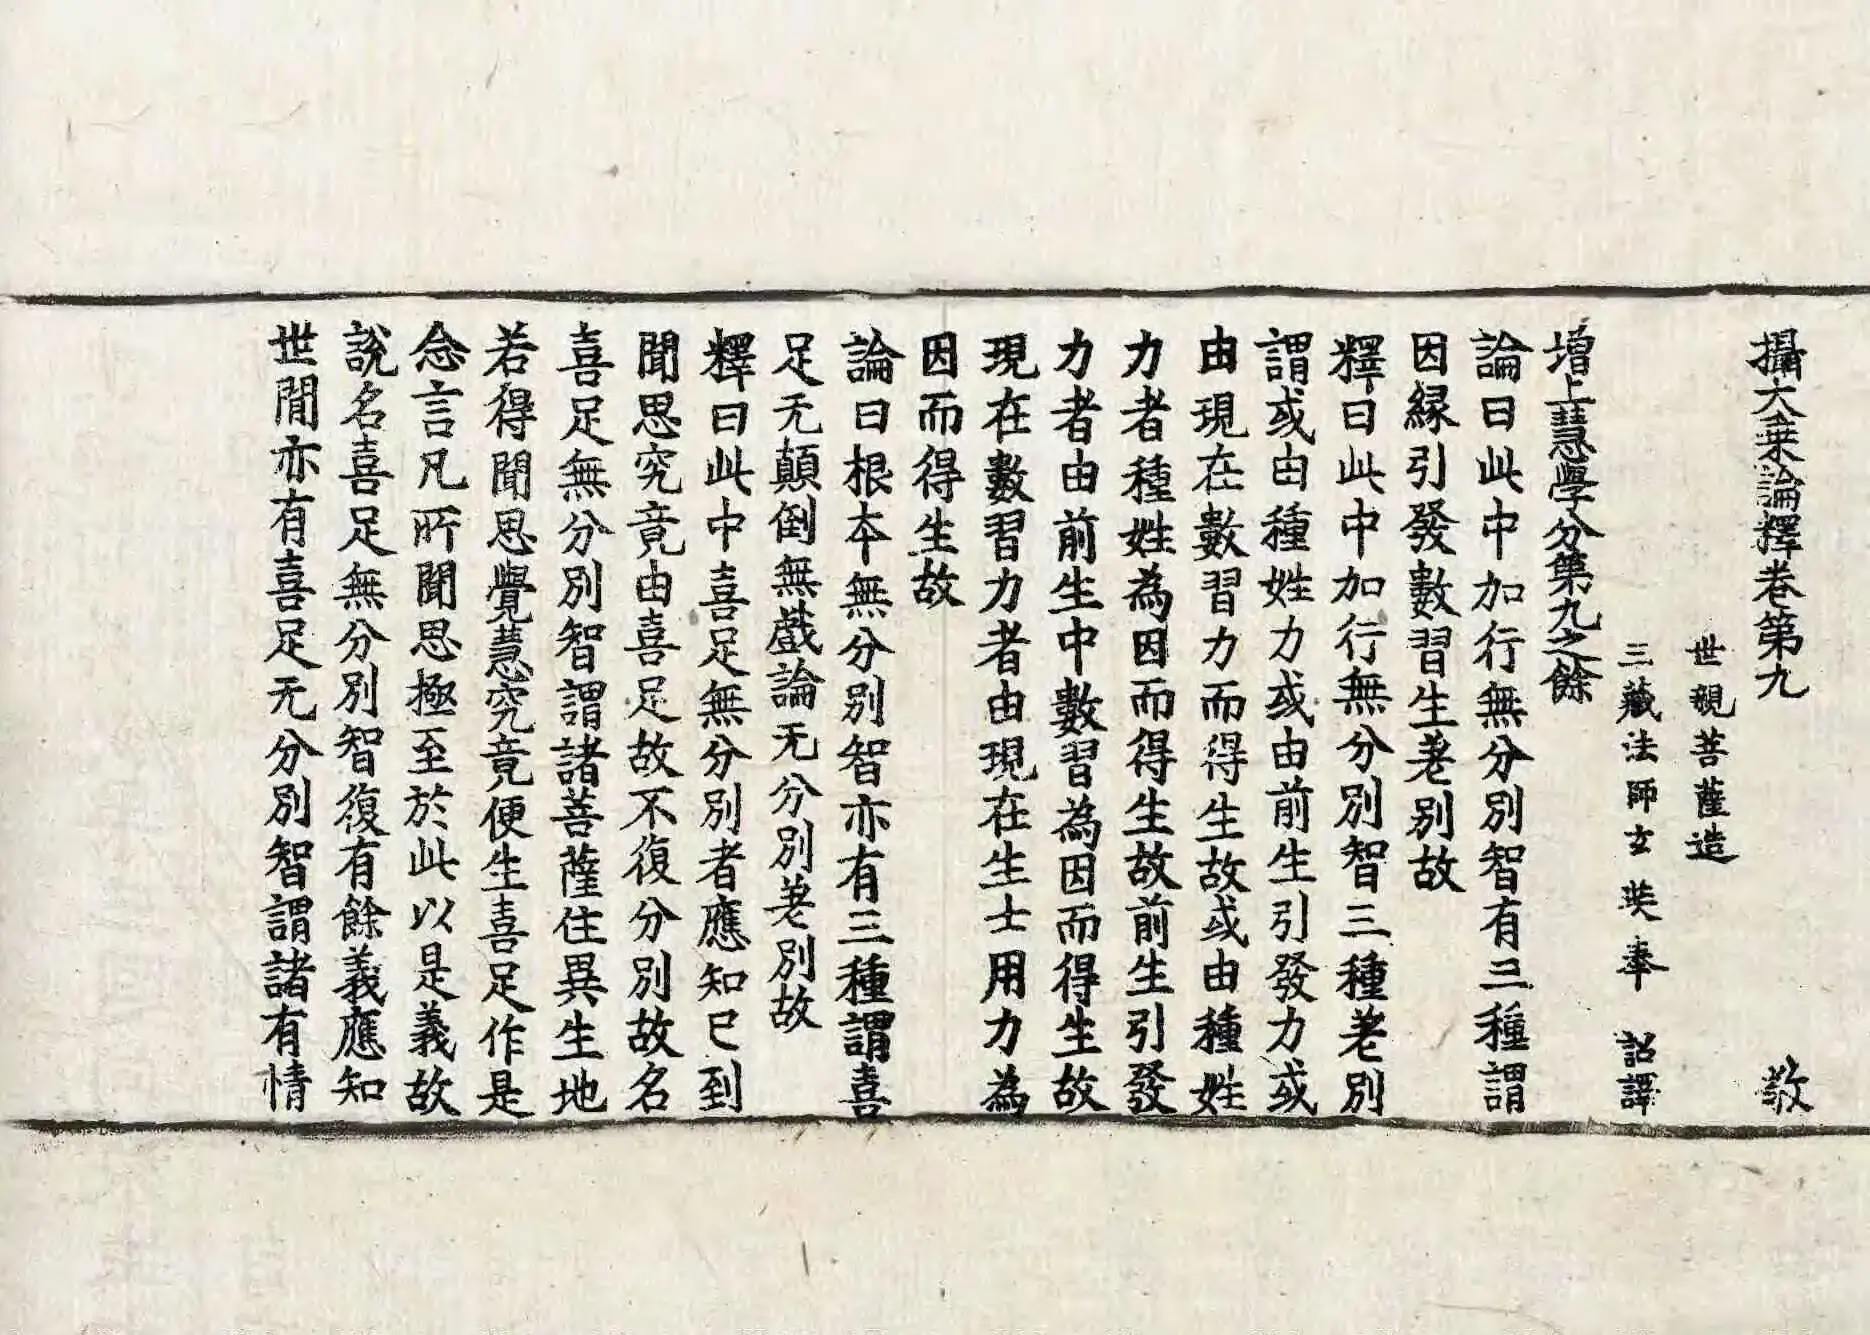 攝大乗論釋卷第九　敬
世親菩薩造
三藏法師玄奘奉　詔譯
增上慧學分第九之餘
論曰此中加行無分別智有三種謂
因緣引發數習生差別故
釋曰此中加行無分別智三種差別
謂或由種姓力或由前生引發力或
由現在數習力而得生故或由種姓
力者種姓為因而得生故前生引發
力者由前生中數習為因而得生故
現在數習力者由現在生士用力為
因而得生故
論曰根本無分別智亦有三種謂喜
足无顛倒無戲論无分別差別故
釋曰此中喜足無分別者應知已到
聞思究竟由喜足故不復分別故名
喜足無分別智謂諸菩薩住異生地
若得聞思覺慧究竟便生喜足作是
念言凡所聞思極至於此以是義故
說名喜足無分別智復有餘義應知
世間亦有喜足无分別智謂諸有情